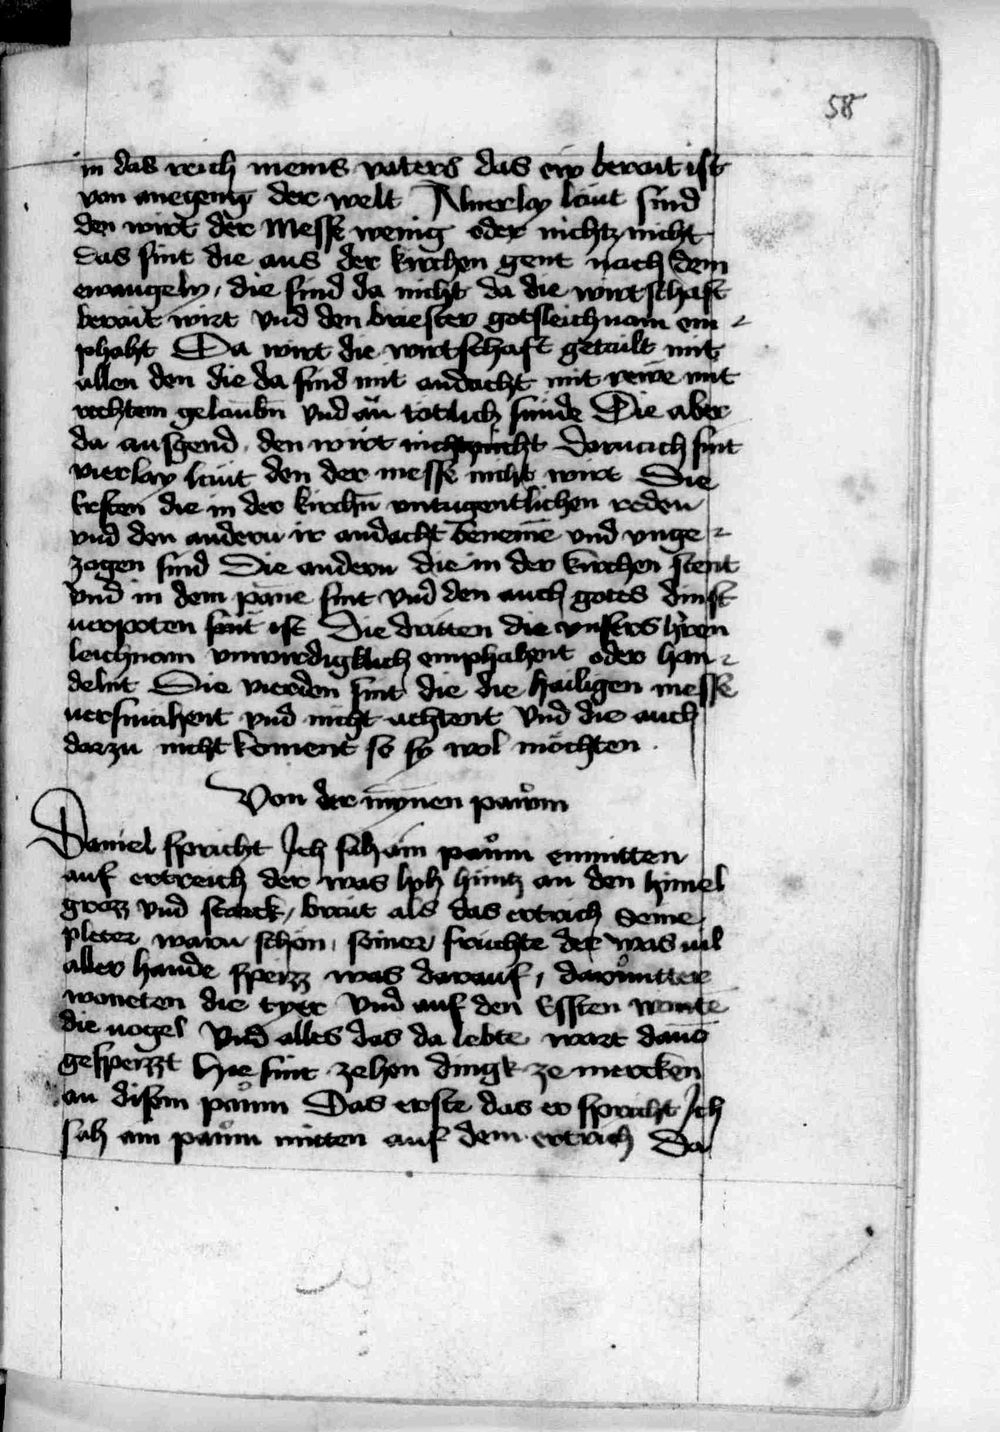 58
in das reich meins vaters das ew berait ist
von anegeng der welt Ainerlay läut sind
den wirt der Messe wenig oder nichtz nicht
das sint die aus der kirchen gent nach dem
ewangely, die sind da nicht da die wirtschaft
berait wirt vnd den briester gotsleichnam em
phaht Da wirt die wirtschaft getailt mit
allen den die da sind mit andacht mit rewe mit
rechtem gelaubn vnd an tötlich sünde Die aber
da ausgend, den wirt nichtznicht Darnach sint
vierlay läut den der messe nicht wirt Die
ersten die in der kirchn vntugentlichen reden
vnd den andern ir andacht beneme vnd vnge
zogen sind Die andern die in der kirchen stent
vnd in dem pane sint vnd den auch gotes dinst
verpoten sint ist Die dritten die vnsers hren
leichnam vnwirdigklich emphahent oder han
delnt Die vierden sint die die heiligen messe
versmähent vnd nicht achtent vnd die auch
darzu nicht koment so sy wol möchten .
Von der mynnen pawm
Daniel spricht Ich sah ain paum enmitten
auf ertreich der was hoh hintz an den himel
grozz vnd starck, brait als das ertrich Seine
pleter warn schön, seiner früchte der was vil
aller hande speizz was darauf, darunter
woneten die tyer Vnd auf den Essten wonte
die vogel Vnd alles das da lebte wart dauo
gespeizzt Hie sint zehen dingk ze mercken
an disem paum Das erste das er spricht Ich
sah ain paum mitten auf dem ertrich Da